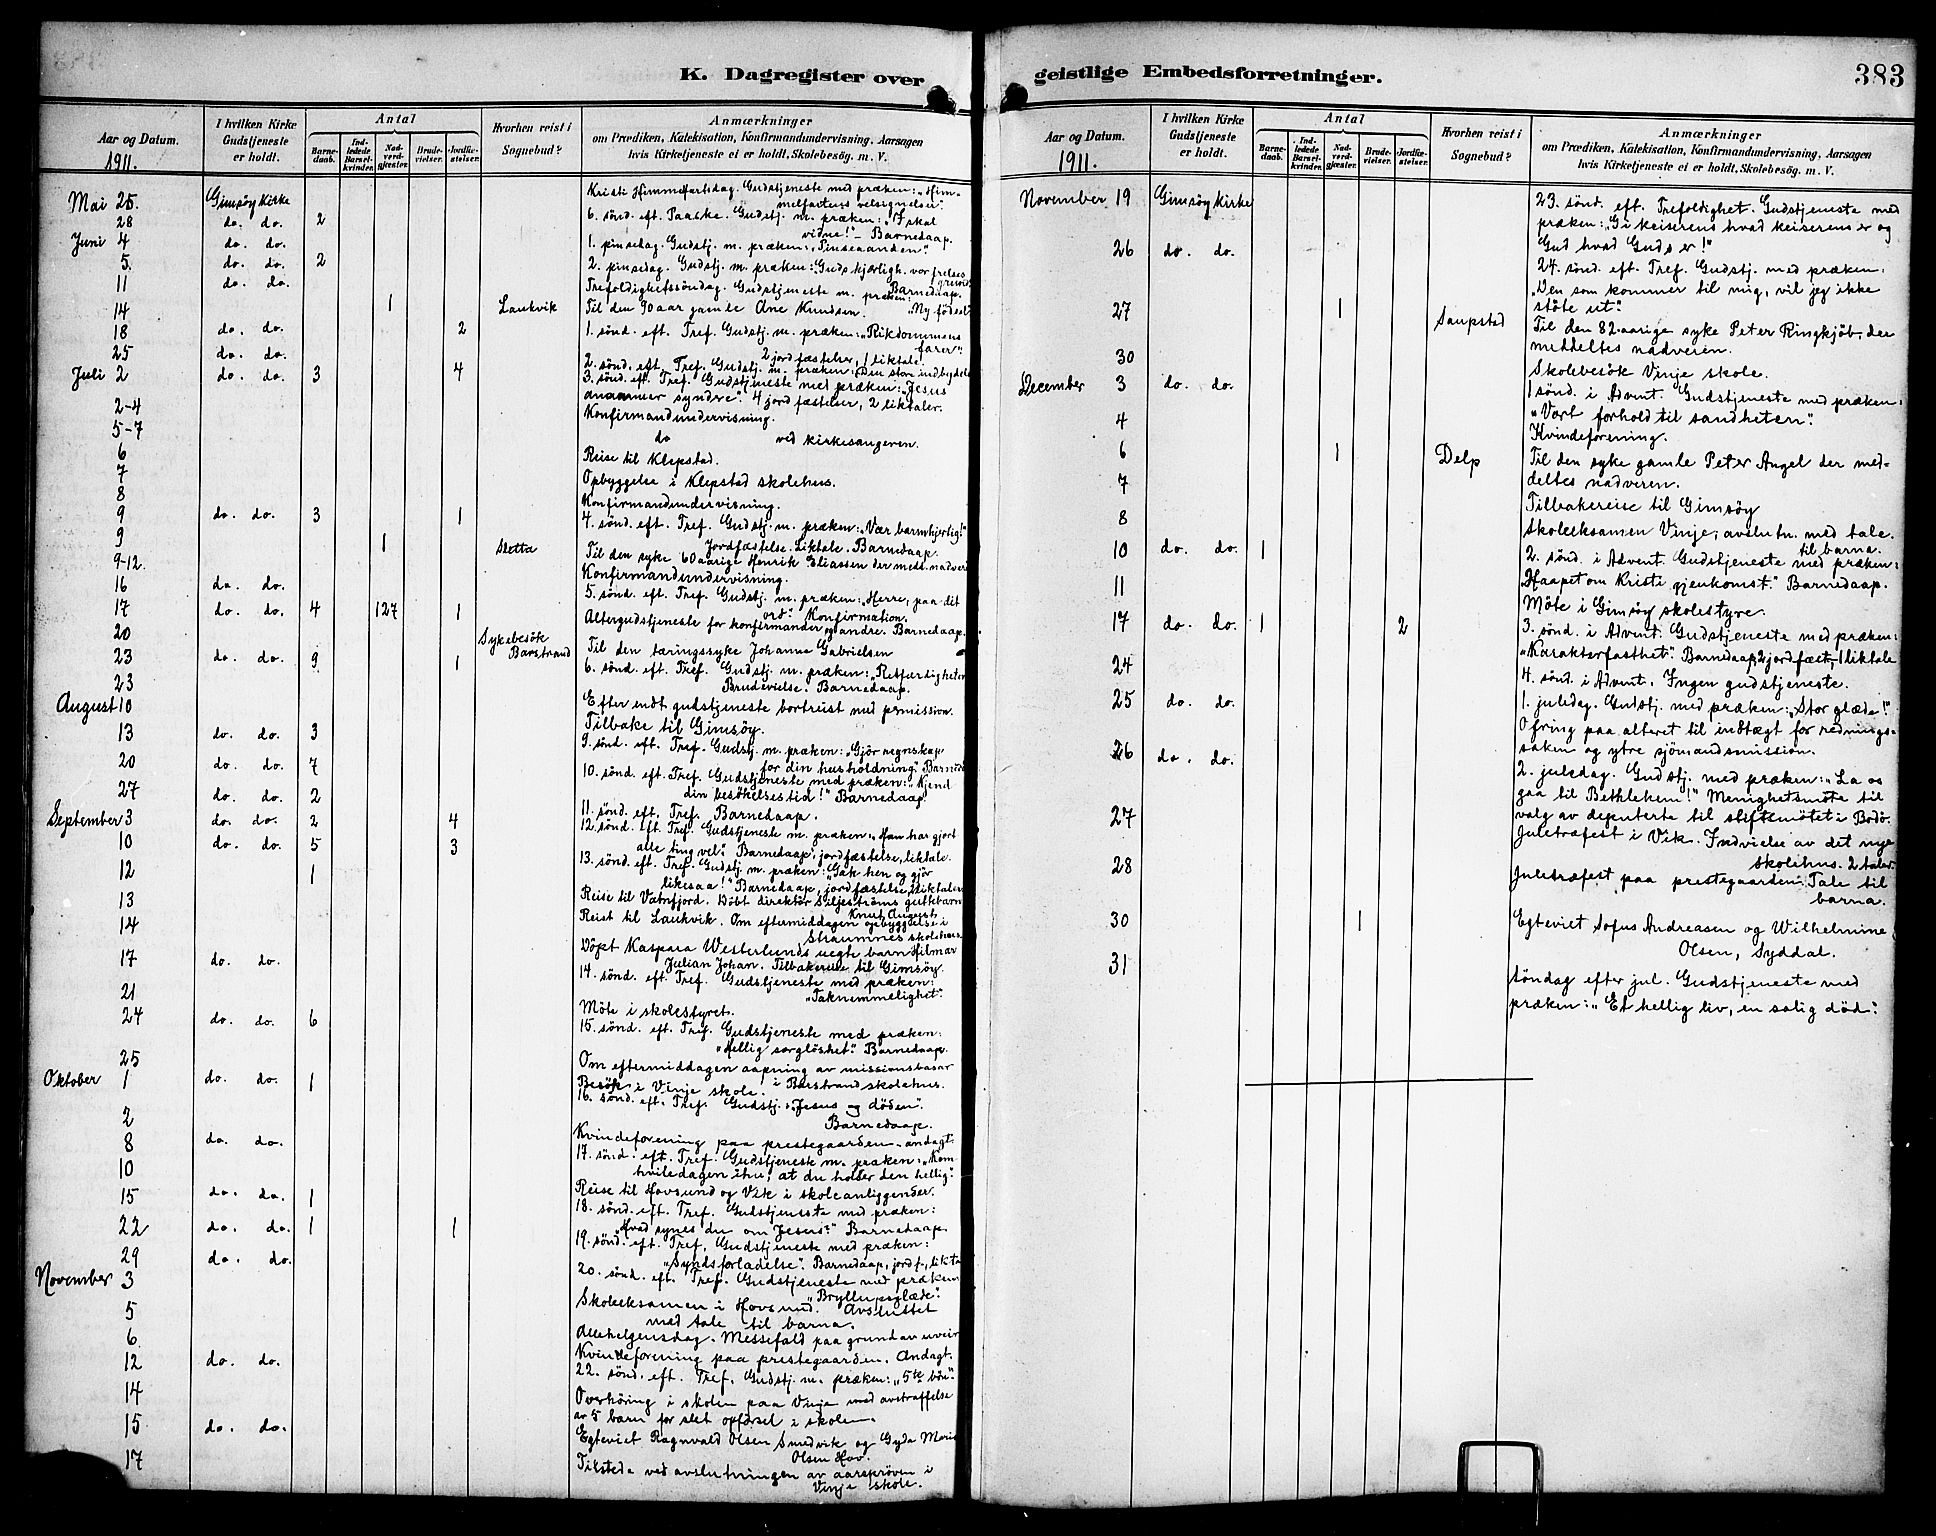 K. Dagregister over
Aar og Datum.
1911.
I hvilken Kirke Gudstjeneste er holdt.
Antal
Barnedaab.
Indledede Barselkvinder.
Nadverdgjæster.
Brudevielser.
Jordfæstelser.
Hvorhen reist i Sognebud?
Anmærkninger
om Prædiken, Katekisation, Konfirmandundervisning, Aarsagen
hvis Kirketjeneste ei er holdt, Skolebesög. m. V.
Mai 25 Gimsöy Kirke Kristi Himmelfartsdag. Gudstjeneste med præken: „Him-
melfartens velsignelser."
28 do. do. 2 6. sönd. eft. Paaske. Gudstj. m. præken: „I skal
vidne!" – Barnedaap.
Juni 4 do. do. 1. pinsedag. Gudstj. m. præken: „Pinseaanden".
5. do. do. 2 2. pinsedag. Gudstj. m. præken: Guds kjærligh. vor frelses
grund. Barnedaap.
11 do. do. Trefoldighetssöndag. Gudstjeneste m. præken:
„Ny födsel"
14 1 Laukvik Til den 90 aar gamle Ane Knudsen.
18 do. do. 2 1. sönd. eft. Tref. Gudstj. m. præken: „Rikdommens
farer".
2 jordfæstelser, 1 liktale.
25 do. do. 2. sönd. eft. Tref. Gudstj. m. præken: Den store indbydelse
Juli 2 do. do. 3 4 3. sönd. eft. Tref. Gudstjeneste med præken: „Jesus
anammer syndre". 4 jordfæstelser, 2 liktaler.
2-4 Konfirmandundervisning.
5-7 do ved kirkesangeren.
6 Reise til Klepstad.
7 Opbyggelse i Klepstad skolehus.
8 Konfirmandundervisning.
9 do. do. 3 1 4. sönd. eft. Tref. Gudstj. m. præken: „Vær barmhjertig!"
Jordfæstelse. Liktale. Barnedaap.
9 1 Sletta Til den syke 60 aarige Henrik Eliassen der medd. nadverd
9-12. Konfirmandundervisning.
16 do. do. 5. sönd. eft. Tref. Gudstj. m. præken: „Herre, paa dit
ord". Konfirmation.
17 do. do. 4 127 1 Altergudstjeneste for konfirmander og andre. Barnedaap.
20 Sykebesök Barstrand Til den tæringssyke Johanna Gabrielsen
23 do. do. 9 1 6. sönd. eft. Tref. Gudstj. m. præken: „Retfærdigheten
Brudevielse. Barnedaap.
23 Efter endt gudstjeneste bortreist med permission.
August 10 Tilbake til Gimsöy.
13 do. do. 3 9. sönd. eft. Tref. Gudstj. m. præken: „Gjör regnskap
for din husholdning". Barned.
20 do. do. 7 10. sönd. eft. Tref. Gudstjeneste med præken: „Kjend
din besökelsestid!" Barnedaap.
27 do. do. 2 11. sönd. eft. Tref. Barnedaap.
September 3 do. do. 2 4 12. sönd. eft. Tref. Gudstjeneste m. præken: „Han har gjort
alle ting vel". Barnedaap, jordfæstelse, liktale.
10 do. do. 5 3 13. sönd. eft. Tref. Gudstj. m. præken: „Gak hen og gjör
likesaa!" Barnedaap, jordfæstelse, liktaler
12 1 Reise til Vatnfjord. Döbt direktör Siljeströms guttebarn
Knut August
13 Reist til Laukvik. Om eftermiddagen opbyggelse i
Straumnes skolehus.
14 Döpt Kaspara Westerlunds uegte barn Hilmar
Julian Johan. Tilbakereise til Gimsöy.
17 do. do. 14. sönd. eft. Tref. Gudstjeneste med præken:
„Taknemmelighet".
21 Möte i skolestyret.
24 do. do. 6 15. sönd. eft. Tref. Gudstjeneste med præken:
„Hellig sorglöshet". Barnedaap.
Om eftermiddagen aapning av missionsbasar
i Barstrand skolehus.
25 Besök i Vinje skole.
Oktober 1 do. do. 1 16. sönd. eft. Tref. Gudstj.: „Jesus og döden".
Barnedaap.
2 Kvindeforening paa prestegaarden. andagt.
8 do. do. 17. sönd. eft. Tref. Gudstjeneste m. præken: „Kom
hviledagen ihu, at du holder den hellig".
10 Reise til Hovsund og Vik i skoleanliggender.
15 do. do. 1 18. sönd. eft. Tref. Gudstjeneste med præken:
„Hvad synes du om Jesus?" Barnedaap.
22 do. do. 1 1 19. sönd. eft. Tref. Gudstjeneste med præken:
„Syndsforladelse". Barnedaap, jordf., likta
29 do. do. 20. sönd. eft. Tref. Gudstjeneste med præken
„Bryllupsglæde".
November 3 Skoleeksamen i Hovsund. Avsluttet
med tale til barna.
5 Allehelgensdag. Messefald paa grund av uveir
6 Kvindeforening paa prestegaarden. Andagt.
12 do. do. 22. sönd. eft. Tref. Gudstj. m. præken: „5te bön".
14 Overhöring i skolen paa Vinje med avstraffelse
av 5 barn for slet opförsel i skolen.
15 do. do. Egteviet Ragnvald Olsen Sundvik og Gyda Marie
Olsen Hov.
17 Tilstede ved avslutningen av aarspröven i
Vinje skole.
geistlige Embedsforretninger.
383
Aar og Datum.
1911.
I hvilken Kirke Gudstjeneste er holdt.
Antal
Barnedaab.
Indledede Barselkvinder.
Nadverdgjæster.
Brudevielser.
Jordfæstelser.
Hvorhen reist i Sognebud?
Anmærkninger
om Prædiken, Katekisation, Konfirmandundervisning, Aarsagen
hvis Kirketjeneste ei er holdt, Skolebesög. m. V.
November 19 Gimsöy Kirke 23. sönd. eft. Trefoldighet. Gudstjeneste med
præken: „Gi keiserens hvad keiserens er og
Gud hvad Guds er!"
26 do. do. 24. sönd. eft. Tref. Gudstj. med præken:
„Den som kommer til mig, vil jeg ikke
stöte ut".
27 1 Saupstad Til den 82-aarige syke Peter Ringkjöb, der
meddeltes nadveren.
30 Skolebesök Vinje skole.
December 3 do. do. 1 sönd. i Advent. Gudstjeneste med præken:
„Vort forhold til sandheten".
4 Kvindeforening.
6 1 Delp Til den syke gamle Peter Angel der med-
deltes nadveren.
7 Tilbakereise til Gimsöy
8 Skoleeksamen Vinje, avslutn. med tale.
til barna.
10 do. do. 1 2. sönd. i Advent. Gudstjeneste med præken:
„Haapet om Kristi gjenkomst". Barnedaap.
11 Möte i Gimsöy skolestyre.
17 do. do. 1 2 3. sönd. i Advent. Gudstjeneste med præken:
„Karakterfasthet". Barnedaap, 2 jordfæst., 1 liktale
24 4. sönd. i Advent. Ingen gudstjeneste.
25 do. do. 1. juledag. Gudstj. med præken: „Stor glæde!"
Ofring paa alteret til indtægt for rednings-
saken og ytre sjömandsmission.
26 do. do. 2. juledag. Gudstj. med præken: „La os
gaa til Bethlehem!" Menighetsmöte til
valg av deputerte til stiftsmötet i Bodö.
27 Juletræfest i Vik. Indvielse av det nye
skolehus. 2 taler.
28 Juletræfest paa prestegaarden. Tale til
barna.
30 1 Egteviet Sofus Andreasen og Wilhelmine
Olsen, Syddal.
31 Söndag efter jul. Gudstjeneste med
præken: „Et hellig liv, en salig död".